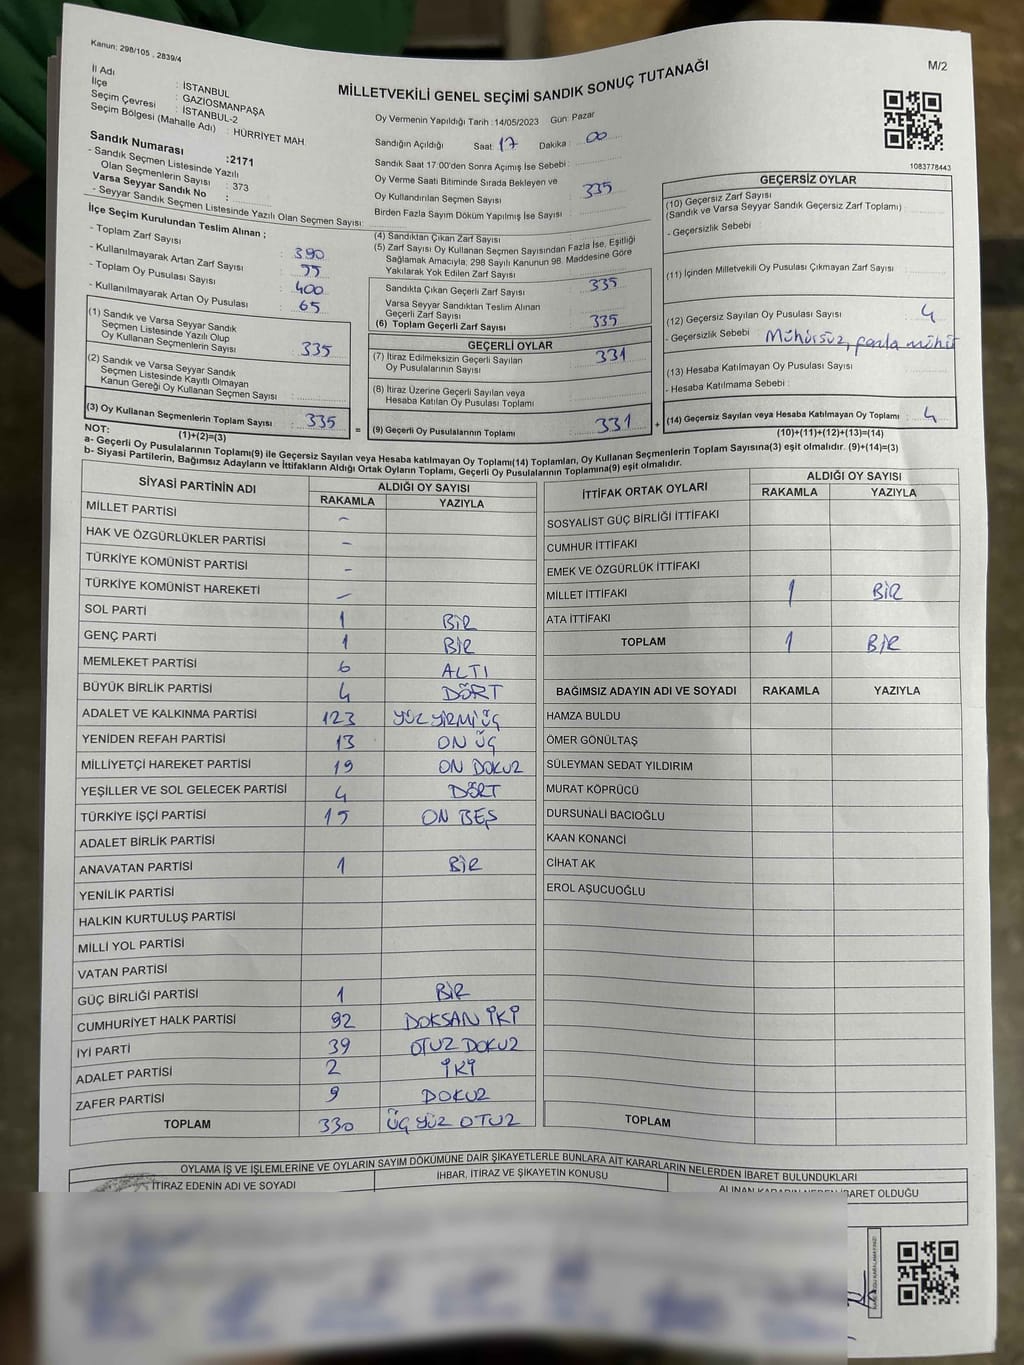 Kanun: 298/105 , 2839/4
M/2
MİLLETVEKİLİ GENEL SEÇİMİ SANDIK SONUÇ TUTANAĞI
İl Adı : İSTANBUL
İlçe : GAZİOSMANPAŞA
Seçim Çevresi : İSTANBUL-2
Seçim Bölgesi (Mahalle Adı) : HÜRRİYET MAH.
Sandık Numarası :2171
- Sandık Seçmen Listesinde Yazılı
Olan Seçmenlerin Sayısı : 373
Varsa Seyyar Sandık No :
- Seyyar Sandık Seçmen Listesinde Yazılı Olan Seçmen Sayısı:
İlçe Seçim Kurulundan Teslim Alınan ;
- Toplam Zarf Sayısı : 390
- Kullanılmayarak Artan Zarf Sayısı : 55
- Toplam Oy Pusulası Sayısı : 400
- Kullanılmayarak Artan Oy Pusulası : 65
(1) Sandık ve Varsa Seyyar Sandık
Seçmen Listesinde Yazılı Olup
Oy Kullanan Seçmenlerin Sayısı : 335
(2) Sandık ve Varsa Seyyar Sandık
Seçmen Listesinde Kayıtlı Olmayan
Kanun Gereği Oy Kullanan Seçmen Sayısı :
(3) Oy Kullanan Seçmenlerin Toplam Sayısı : 335 =
(1)+(2)=(3)
Oy Vermenin Yapıldığı Tarih :14/05/2023 Gün: Pazar
Sandığın Açıldığı Saat: 17 Dakika : 00
Sandık Saat 17:00'den Sonra Açılmış İse Sebebi :
Oy Verme Saati Bitiminde Sırada Bekleyen ve
Oy Kullandırılan Seçmen Sayısı : 335
Birden Fazla Sayım Döküm Yapılmış İse Sayısı :
(4) Sandıktan Çıkan Zarf Sayısı :
(5) Zarf Sayısı Oy Kullanan Seçmen Sayısından Fazla İse, Eşitliği
Sağlamak Amacıyla; 298 Sayılı Kanunun 98. Maddesine Göre
Yakılarak Yok Edilen Zarf Sayısı :
Sandıkta Çıkan Geçerli Zarf Sayısı : 335
Varsa Seyyar Sandıktan Teslim Alınan
Geçerli Zarf Sayısı :
(6) Toplam Geçerli Zarf Sayısı : 335
GEÇERLİ OYLAR
(7) İtiraz Edilmeksizin Geçerli Sayılan
Oy Pusulalarının Sayısı : 331
(8) İtiraz Üzerine Geçerli Sayılan veya
Hesaba Katılan Oy Pusulası Toplamı :
(9) Geçerli Oy Pusulalarının Toplamı : 331 +
1083778443
GEÇERSİZ OYLAR
(10) Geçersiz Zarf Sayısı
(Sandık ve Varsa Seyyar Sandık Geçersiz Zarf Toplamı) :
- Geçersizlik Sebebi :
(11) İçinden Milletvekili Oy Pusulası Çıkmayan Zarf Sayısı :
(12) Geçersiz Sayılan Oy Pusulası Sayısı : 4
- Geçersizlik Sebebi : Mühürsüz, fazla mühür
(13) Hesaba Katılmayan Oy Pusulası Sayısı :
- Hesaba Katılmama Sebebi :
(14) Geçersiz Sayılan veya Hesaba Katılmayan Oy Toplamı : 4
(10)+(11)+(12)+(13)=(14)
NOT:
a- Geçerli Oy Pusulalarının Toplamı(9) ile Geçersiz Sayılan veya Hesaba katılmayan Oy Toplamı(14) Toplamları, Oy Kullanan Seçmenlerin Toplam Sayısına(3) eşit olmalıdır. (9)+(14)=(3)
b- Siyasi Partilerin, Bağımsız Adayların ve İttifakların Aldığı Ortak Oyların Toplamı, Geçerli Oy Pusulalarının Toplamına(9) eşit olmalıdır.
SİYASİ PARTİNİN ADI ALDIĞI OY SAYISI
RAKAMLA YAZIYLA
MİLLET PARTİSİ -
HAK VE ÖZGÜRLÜKLER PARTİSİ -
TÜRKİYE KOMÜNİST PARTİSİ -
TÜRKİYE KOMÜNİST HAREKETİ -
SOL PARTİ 1 BİR
GENÇ PARTİ 1 BİR
MEMLEKET PARTİSİ 6 ALTI
BÜYÜK BİRLİK PARTİSİ 4 DÖRT
ADALET VE KALKINMA PARTİSİ 123 YÜZ YİRMİ ÜÇ
YENİDEN REFAH PARTİSİ 13 ON ÜÇ
MİLLİYETÇİ HAREKET PARTİSİ 19 ON DOKUZ
YEŞİLLER VE SOL GELECEK PARTİSİ 4 DÖRT
TÜRKİYE İŞÇİ PARTİSİ 15 ON BEŞ
ADALET BİRLİK PARTİSİ
ANAVATAN PARTİSİ 1 BİR
YENİLİK PARTİSİ
HALKIN KURTULUŞ PARTİSİ
MİLLİ YOL PARTİSİ
VATAN PARTİSİ
GÜÇ BİRLİĞİ PARTİSİ 1 BİR
CUMHURİYET HALK PARTİSİ 92 DOKSAN İKİ
İYİ PARTİ 39 OTUZ DOKUZ
ADALET PARTİSİ 2 İKİ
ZAFER PARTİSİ 9 DOKUZ
TOPLAM 330 ÜÇ YÜZ OTUZ
İTTİFAK ORTAK OYLARI ALDIĞI OY SAYISI
RAKAMLA YAZIYLA
SOSYALİST GÜÇ BİRLİĞİ İTTİFAKI
CUMHUR İTTİFAKI
EMEK VE ÖZGÜRLÜK İTTİFAKI
MİLLET İTTİFAKI 1 BİR
ATA İTTİFAKI
TOPLAM 1 BİR
BAĞIMSIZ ADAYIN ADI VE SOYADI RAKAMLA YAZIYLA
HAMZA BULDU
ÖMER GÖNÜLTAŞ
SÜLEYMAN SEDAT YILDIRIM
MURAT KÖPRÜCÜ
DURSUNALİ BACIOĞLU
KAAN KONANCİ
CİHAT AK
EROL AŞUCUOĞLU
TOPLAM
OYLAMA İŞ VE İŞLEMLERİNE VE OYLARIN SAYIM DÖKÜMÜNE DAİR ŞİKAYETLERLE BUNLARA AİT KARARLARIN NELERDEN İBARET BULUNDUKLARI
İTİRAZ EDENİN ADI VE SOYADI İHBAR, İTİRAZ VE ŞİKAYETİN KONUSU ALINAN KARARIN NEDEN İBARET OLDUĞU